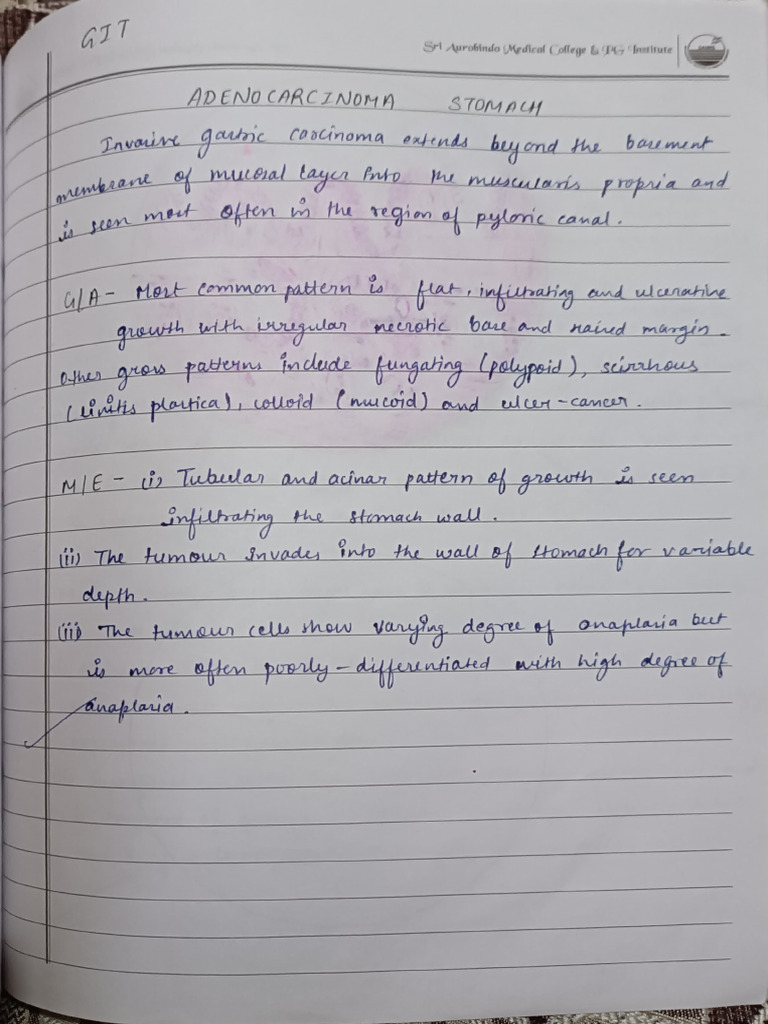 GIT
Sri Aurobindo Medical College & PG Institute
ADENOCARCINOMA STOMACH
Invasive gastric carcinoma extends beyond the basement
membrane of mucosal layer into the muscularis propria and
is seen most often in the region of pyloric canal.
G/A - Most common pattern is flat, infiltrating and ulcerative
growth with irregular necrotic base and raised margin.
Other gross patterns include fungating (polypoid), scirrhous
(linitis plastica), colloid (mucoid) and ulcer-cancer.
M/E - (i) Tubular and acinar pattern of growth is seen
infiltrating the stomach wall.
(ii) The tumour invades into the wall of stomach for variable
depth.
(iii) The tumour cells show varying degree of anaplasia but
is more often poorly-differentiated with high degree of
anaplasia.